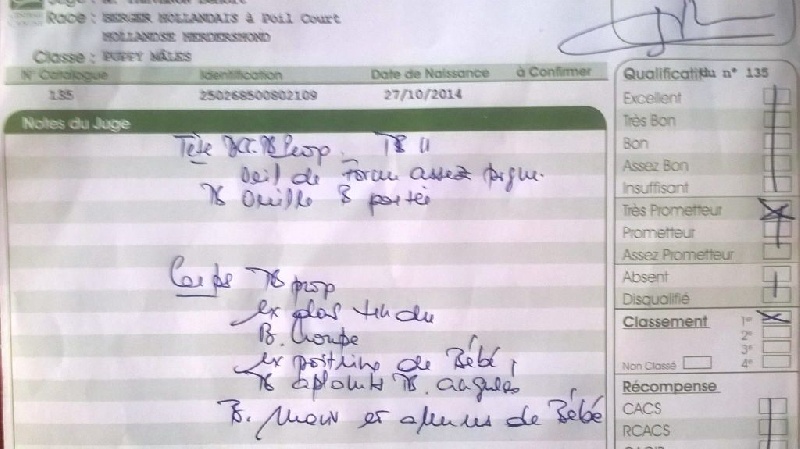 Race : BERGER HOLLANDAIS à Poil Court
HOLLANDSE HERDERSHOND
Classe : PUPPY MÂLES
N° Catalogue Identification Date de Naissance à Confirmer
135 250268500802109 27/10/2014
Notes du Juge
Tête TB prop. TB
Oeil de forme assez
TB Oreille B portée
Corps TB prop
ex dos tendu
B. Croupe
ex poitrine de Bébé,
TB aplombs TB. angulés
B. et de Bébé
Qualification du n° 135
Excellent
Très Bon
Bon
Assez Bon
Insuffisant
Très Prometteur
Prometteur
Assez Prometteur
Absent
Disqualifié
Classement 1er
2e
3e
Non Classé 4e
Récompense
CACS
RCACS